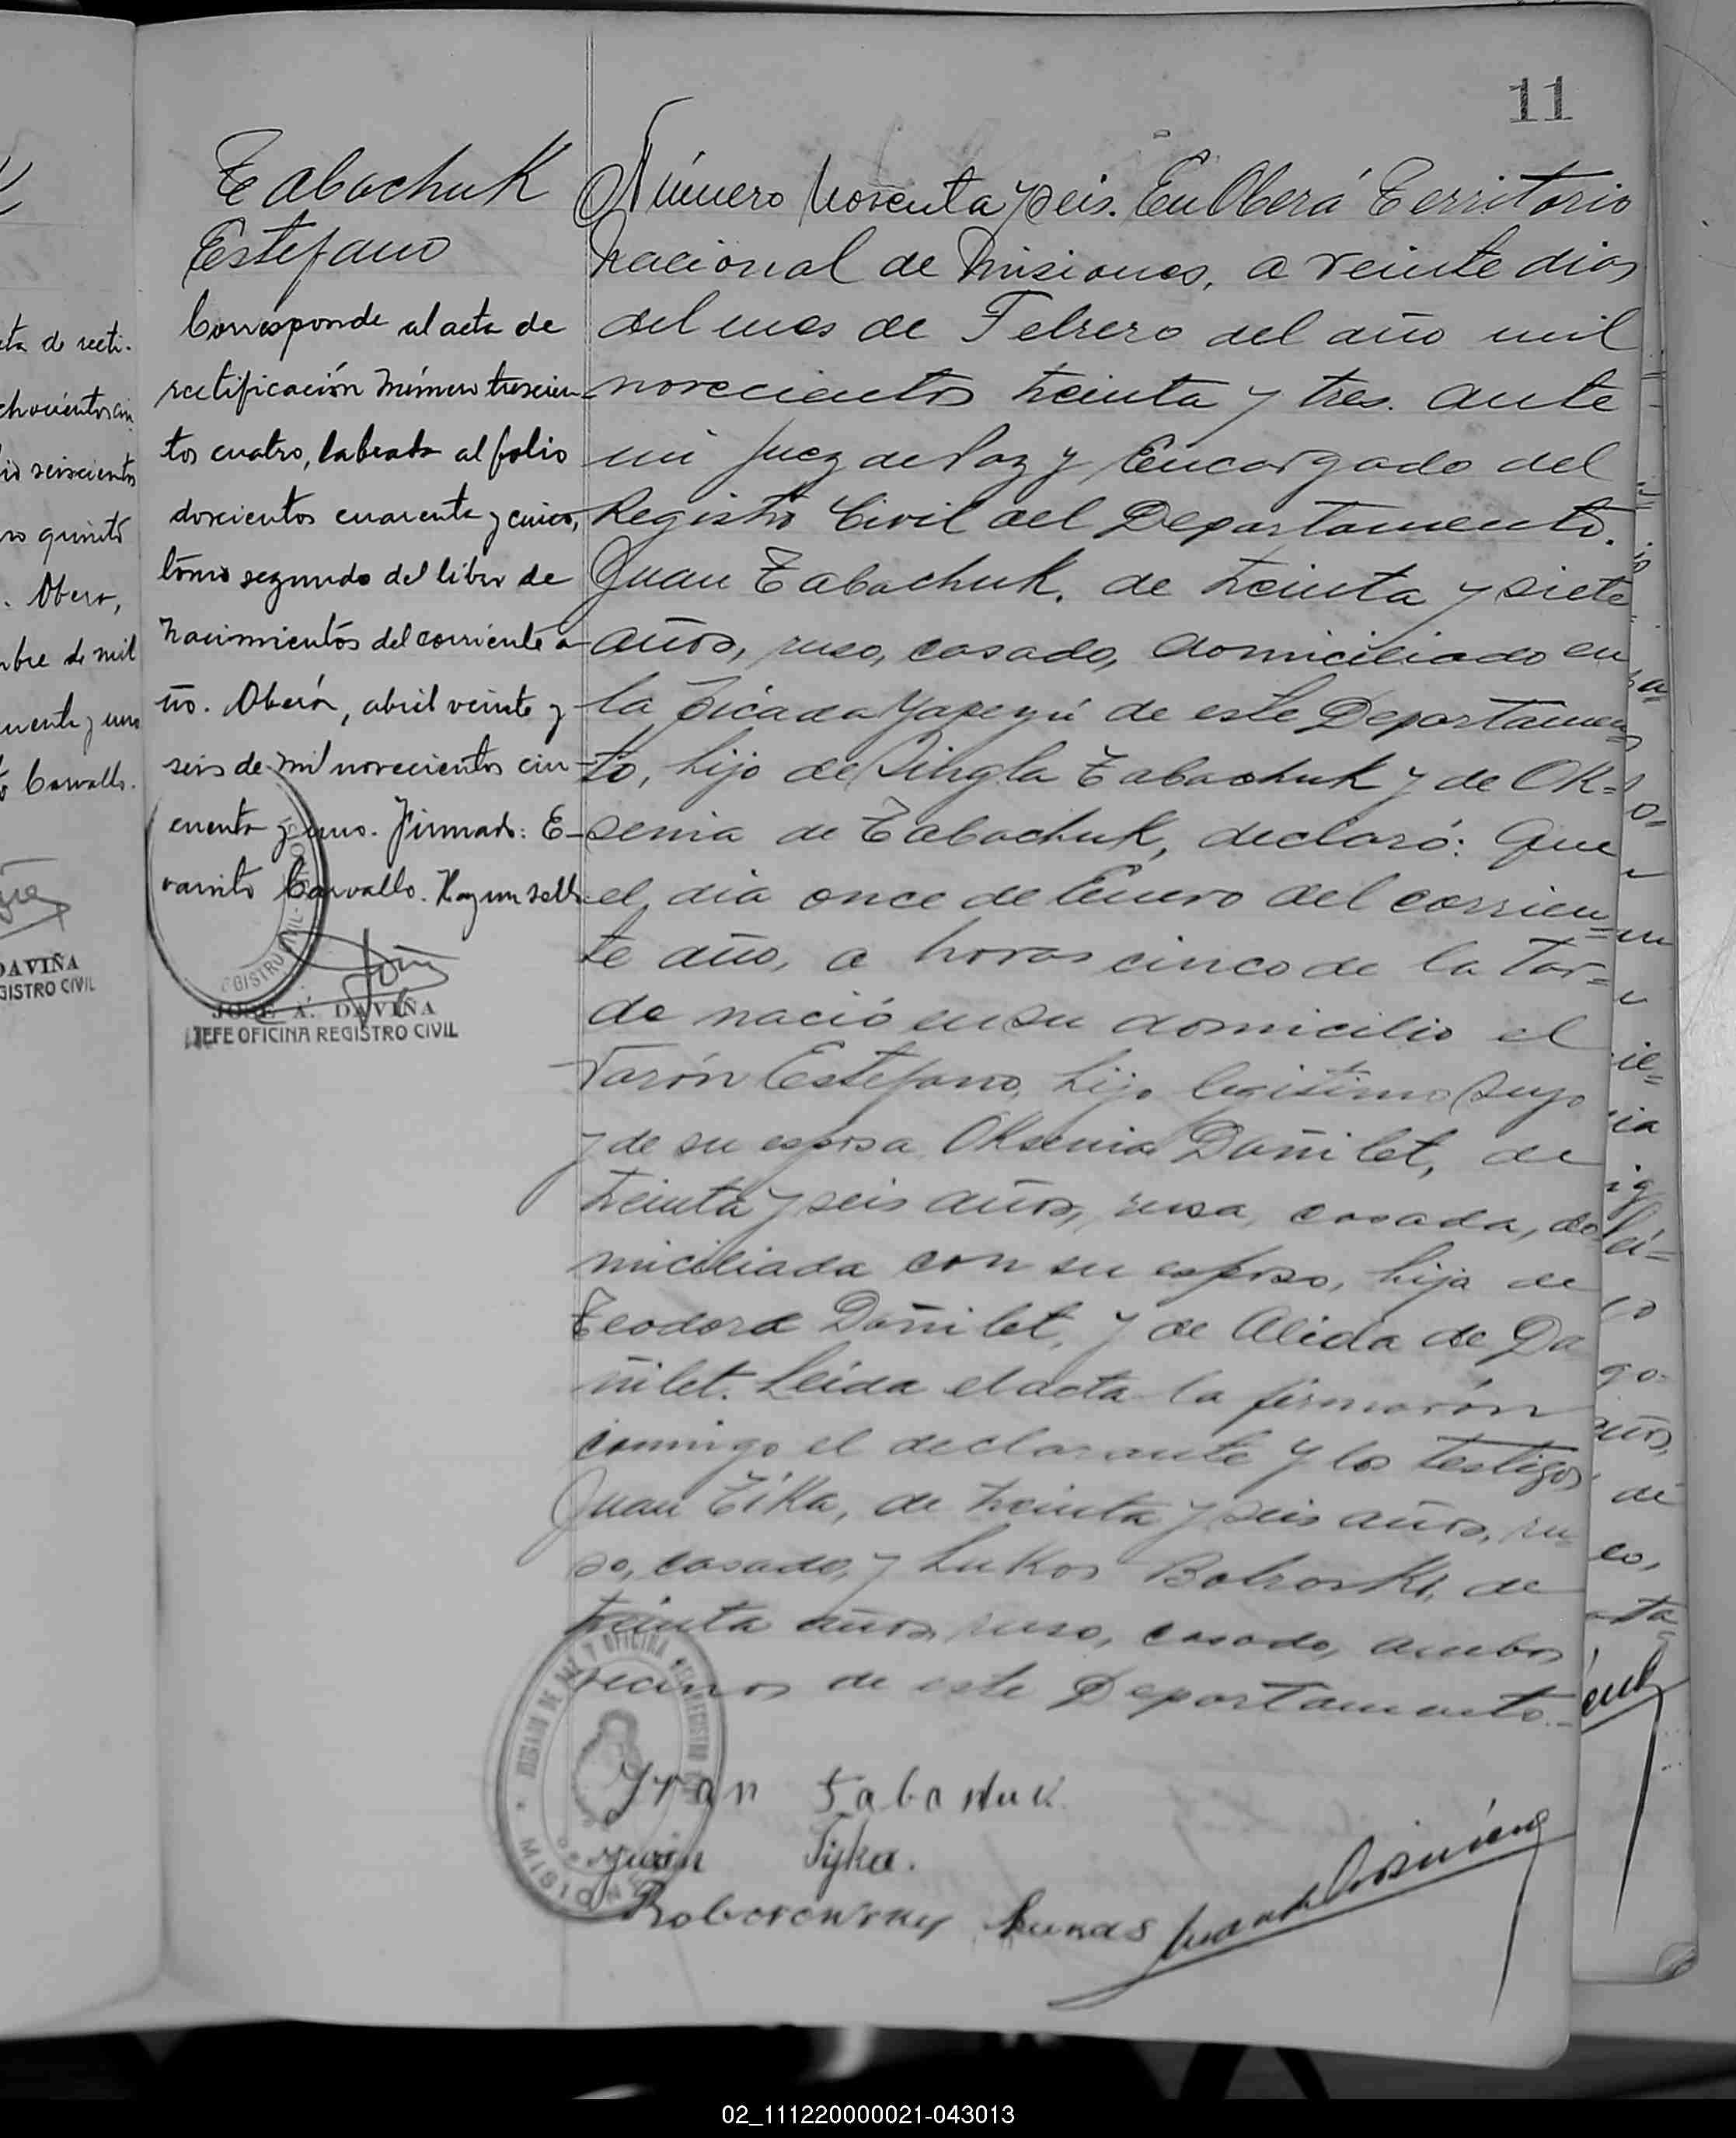 11
Tabachuk
Estefano
Corresponde al acta de
rectificación Número trescien-
tos cuatro, labrada al folio
doscientos cuarenta y cinco,
tomo segundo del libro de
Nacimientos del corriente a-
ño. Oberá, abril veinte y
seis de mil novecientos cin-
cuenta y uno. Firmado: E-
varisto Carvallo. Hay un sello
JOSE A. DAVIÑA
JEFE OFICINA REGISTRO CIVIL
Número Noventa y seis. En Oberá Territorio
Nacional de Misiones, a veinte dias
del mes de Febrero del año mil
novecientos treinta y tres. ante
mi Juez de Paz y Encargado del
Registro Civil del Departamento.
Juan Tabachuk, de treinta y siete
años, ruso, casado, domiciliado en
la Picada Yapeyú de este Departamen=
to, hijo de Singla Tabachuk y de Ok=
senia de Tabachuk, declaró: Que
el dia once de Enero del corrien=
te año, a horas cinco de la tar=
de nació en su domicilio el
varón Estefano, hijo legitimo suyo
y de su esposa Oksenia Dañilet, de
treinta y seis años, rusa, casada, do
miciliada con su esposo, hija de
Teodoro Dañilet, y de Alida de Da
ñilet. Leida el acta la firmarón
conmigo el declarante y los testigos
Juan Tika, de treinta y seis años, ru=
so, casado, y Lukas Bobroski, de
treinta años, ruso, casado, ambos
vecinos de este Departamento.=
Juan Tyka.
Lukas
02_111220000021-043013